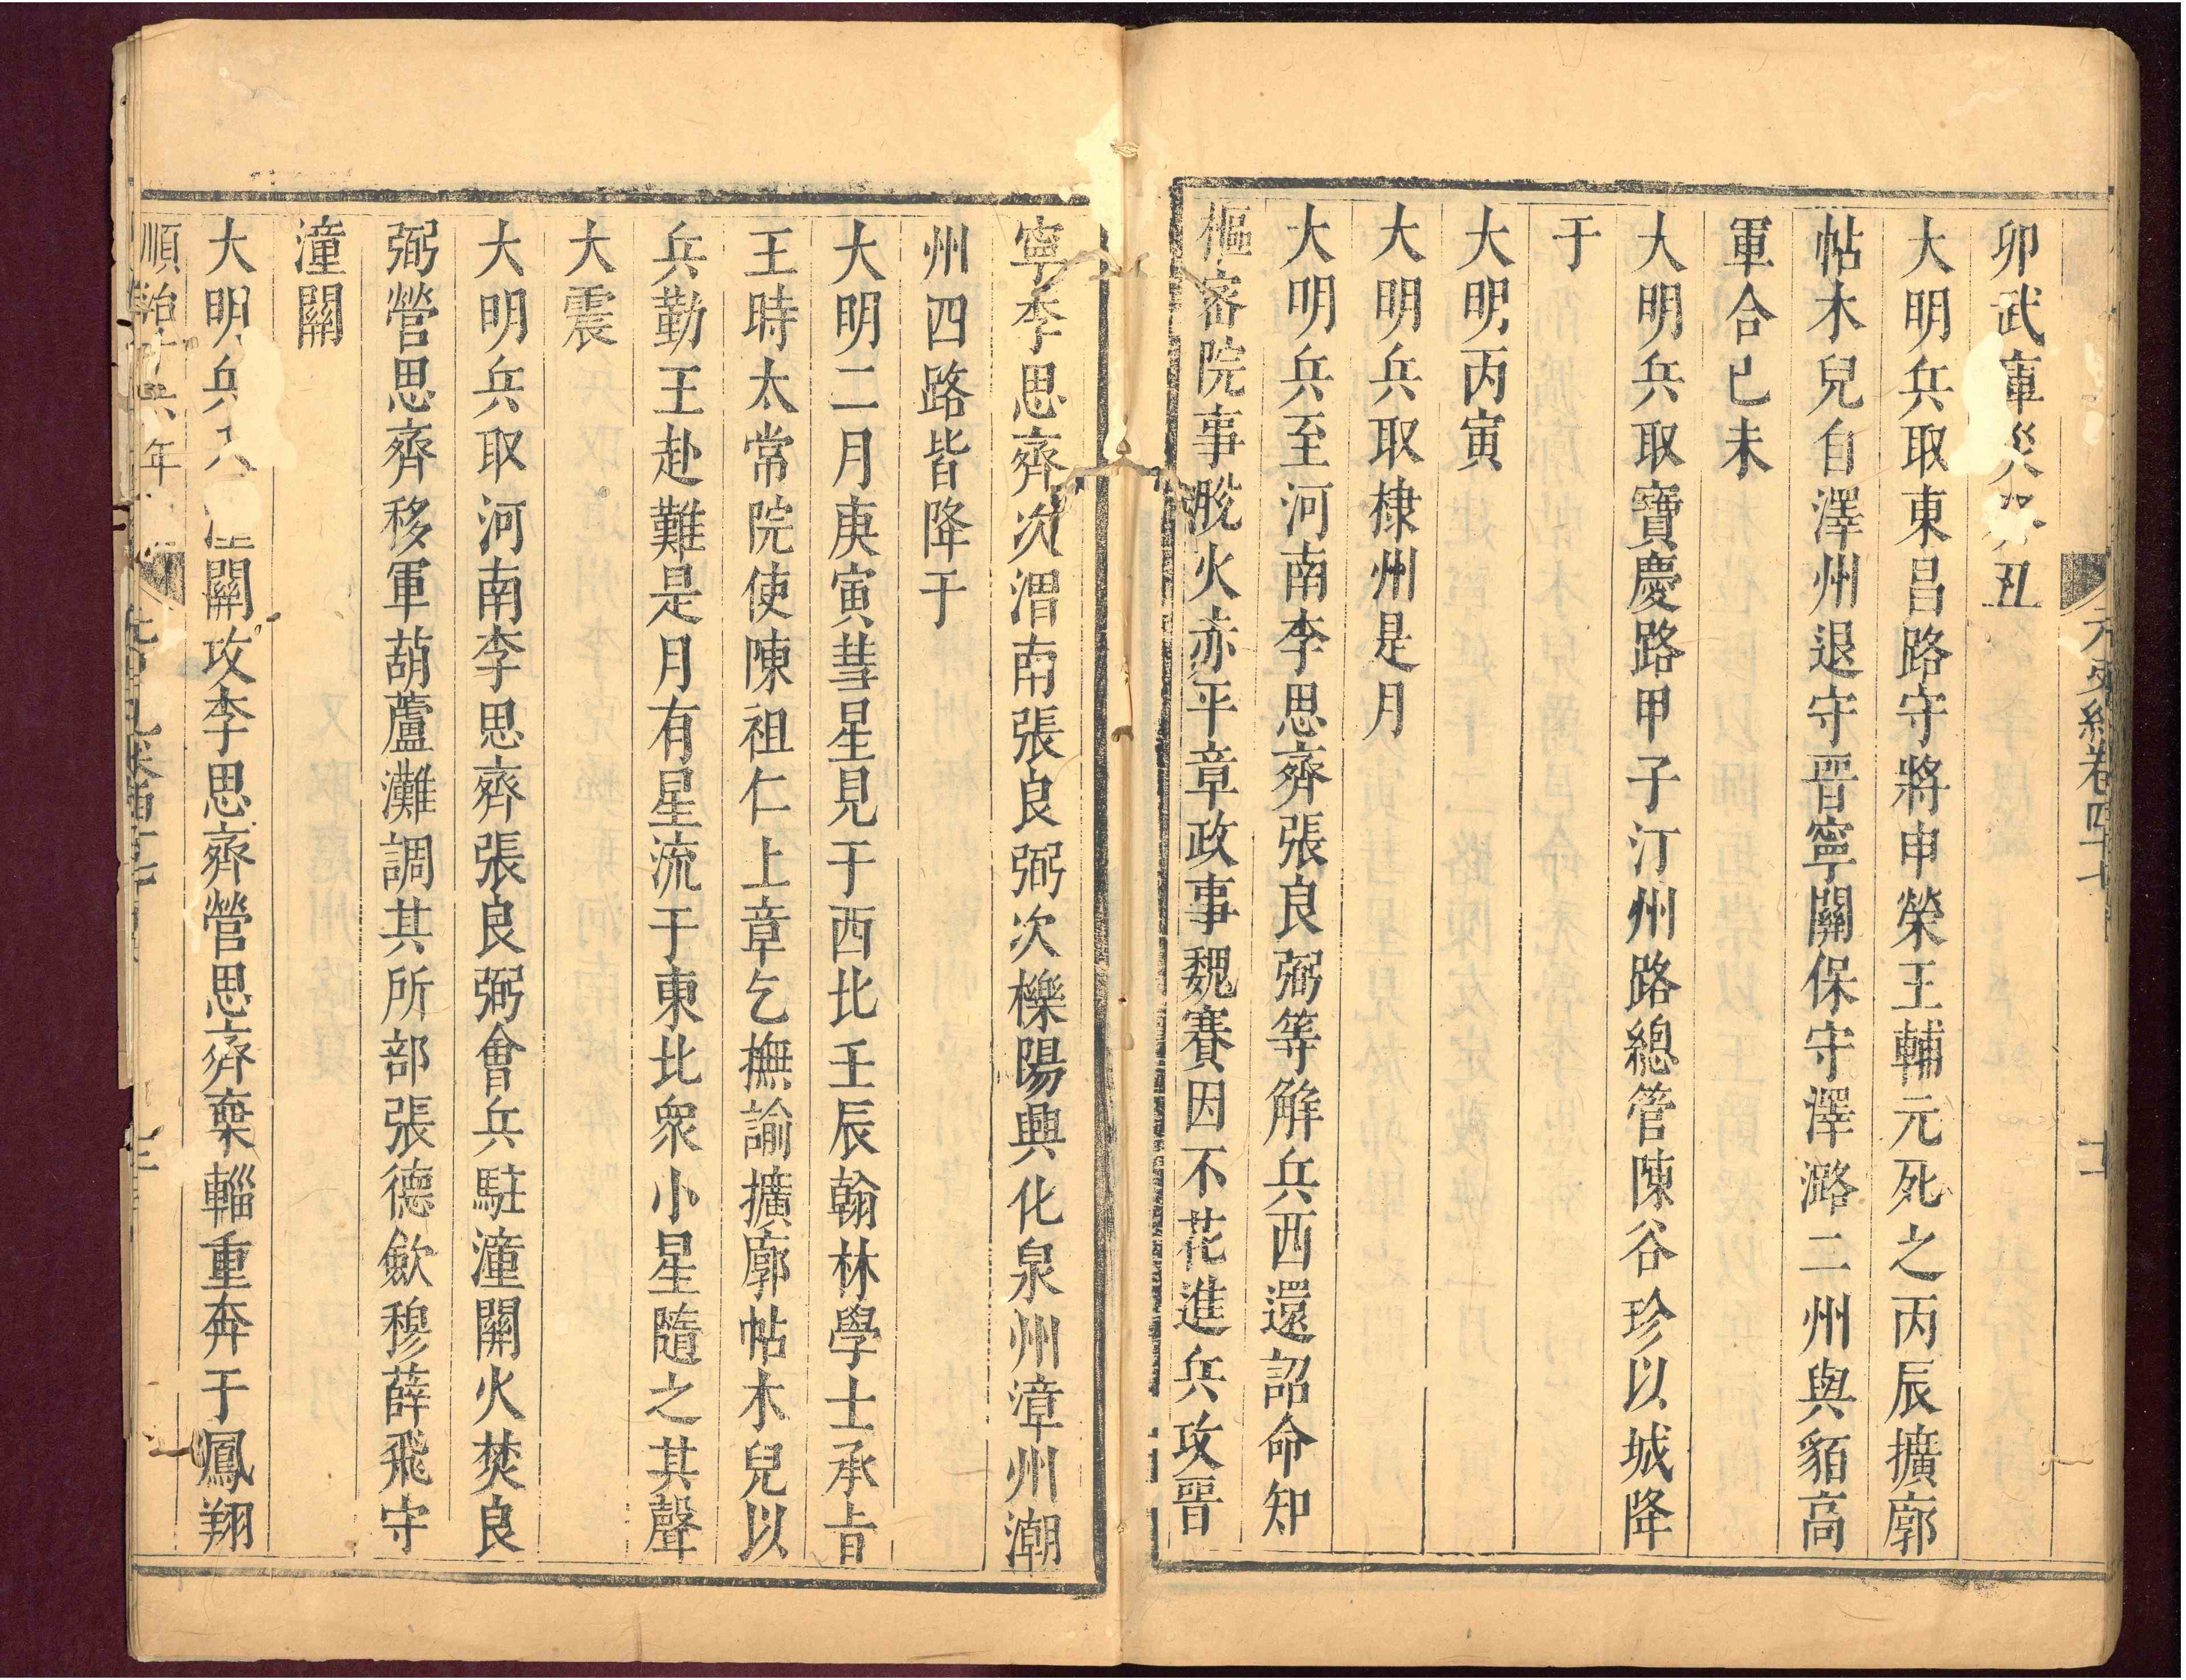 元史紀卷四十七
十二
卯武庫災癸丑
大明兵取東昌路守將申榮王輔元死之丙辰擴廓
帖木兒自澤州退守晉寧關保守澤潞二州與貊高
軍合己未
大明兵取寶慶路甲子汀州路總管陳谷珍以城降
于
大明丙寅
大明兵取棣州是月
大明兵至河南李思齊張良弼等解兵西還詔命知
樞密院事脫火赤平章政事魏賽因不花進兵攻晉
寧李思齊次渭南張良弼次櫟陽興化泉州漳州潮
州四路皆降于
大明二月庚寅彗星見于西北壬辰翰林學士承旨
王時太常院使陳祖仁上章乞撫諭擴廓帖木兒以
兵勤王赴難是月有星流于東北眾小星隨之其聲
大震
大明兵取河南李思齊張良弼會兵駐潼關火焚良
弼營思齊移軍葫蘆灘調其所部張德欽穆薛飛守
潼關
大明兵入潼關攻李思齊營思齊棄輜重奔于鳳翔
順治十六年